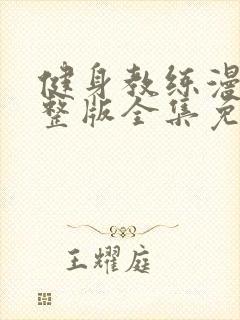 健身教练漫
整版全集免
王耀庭